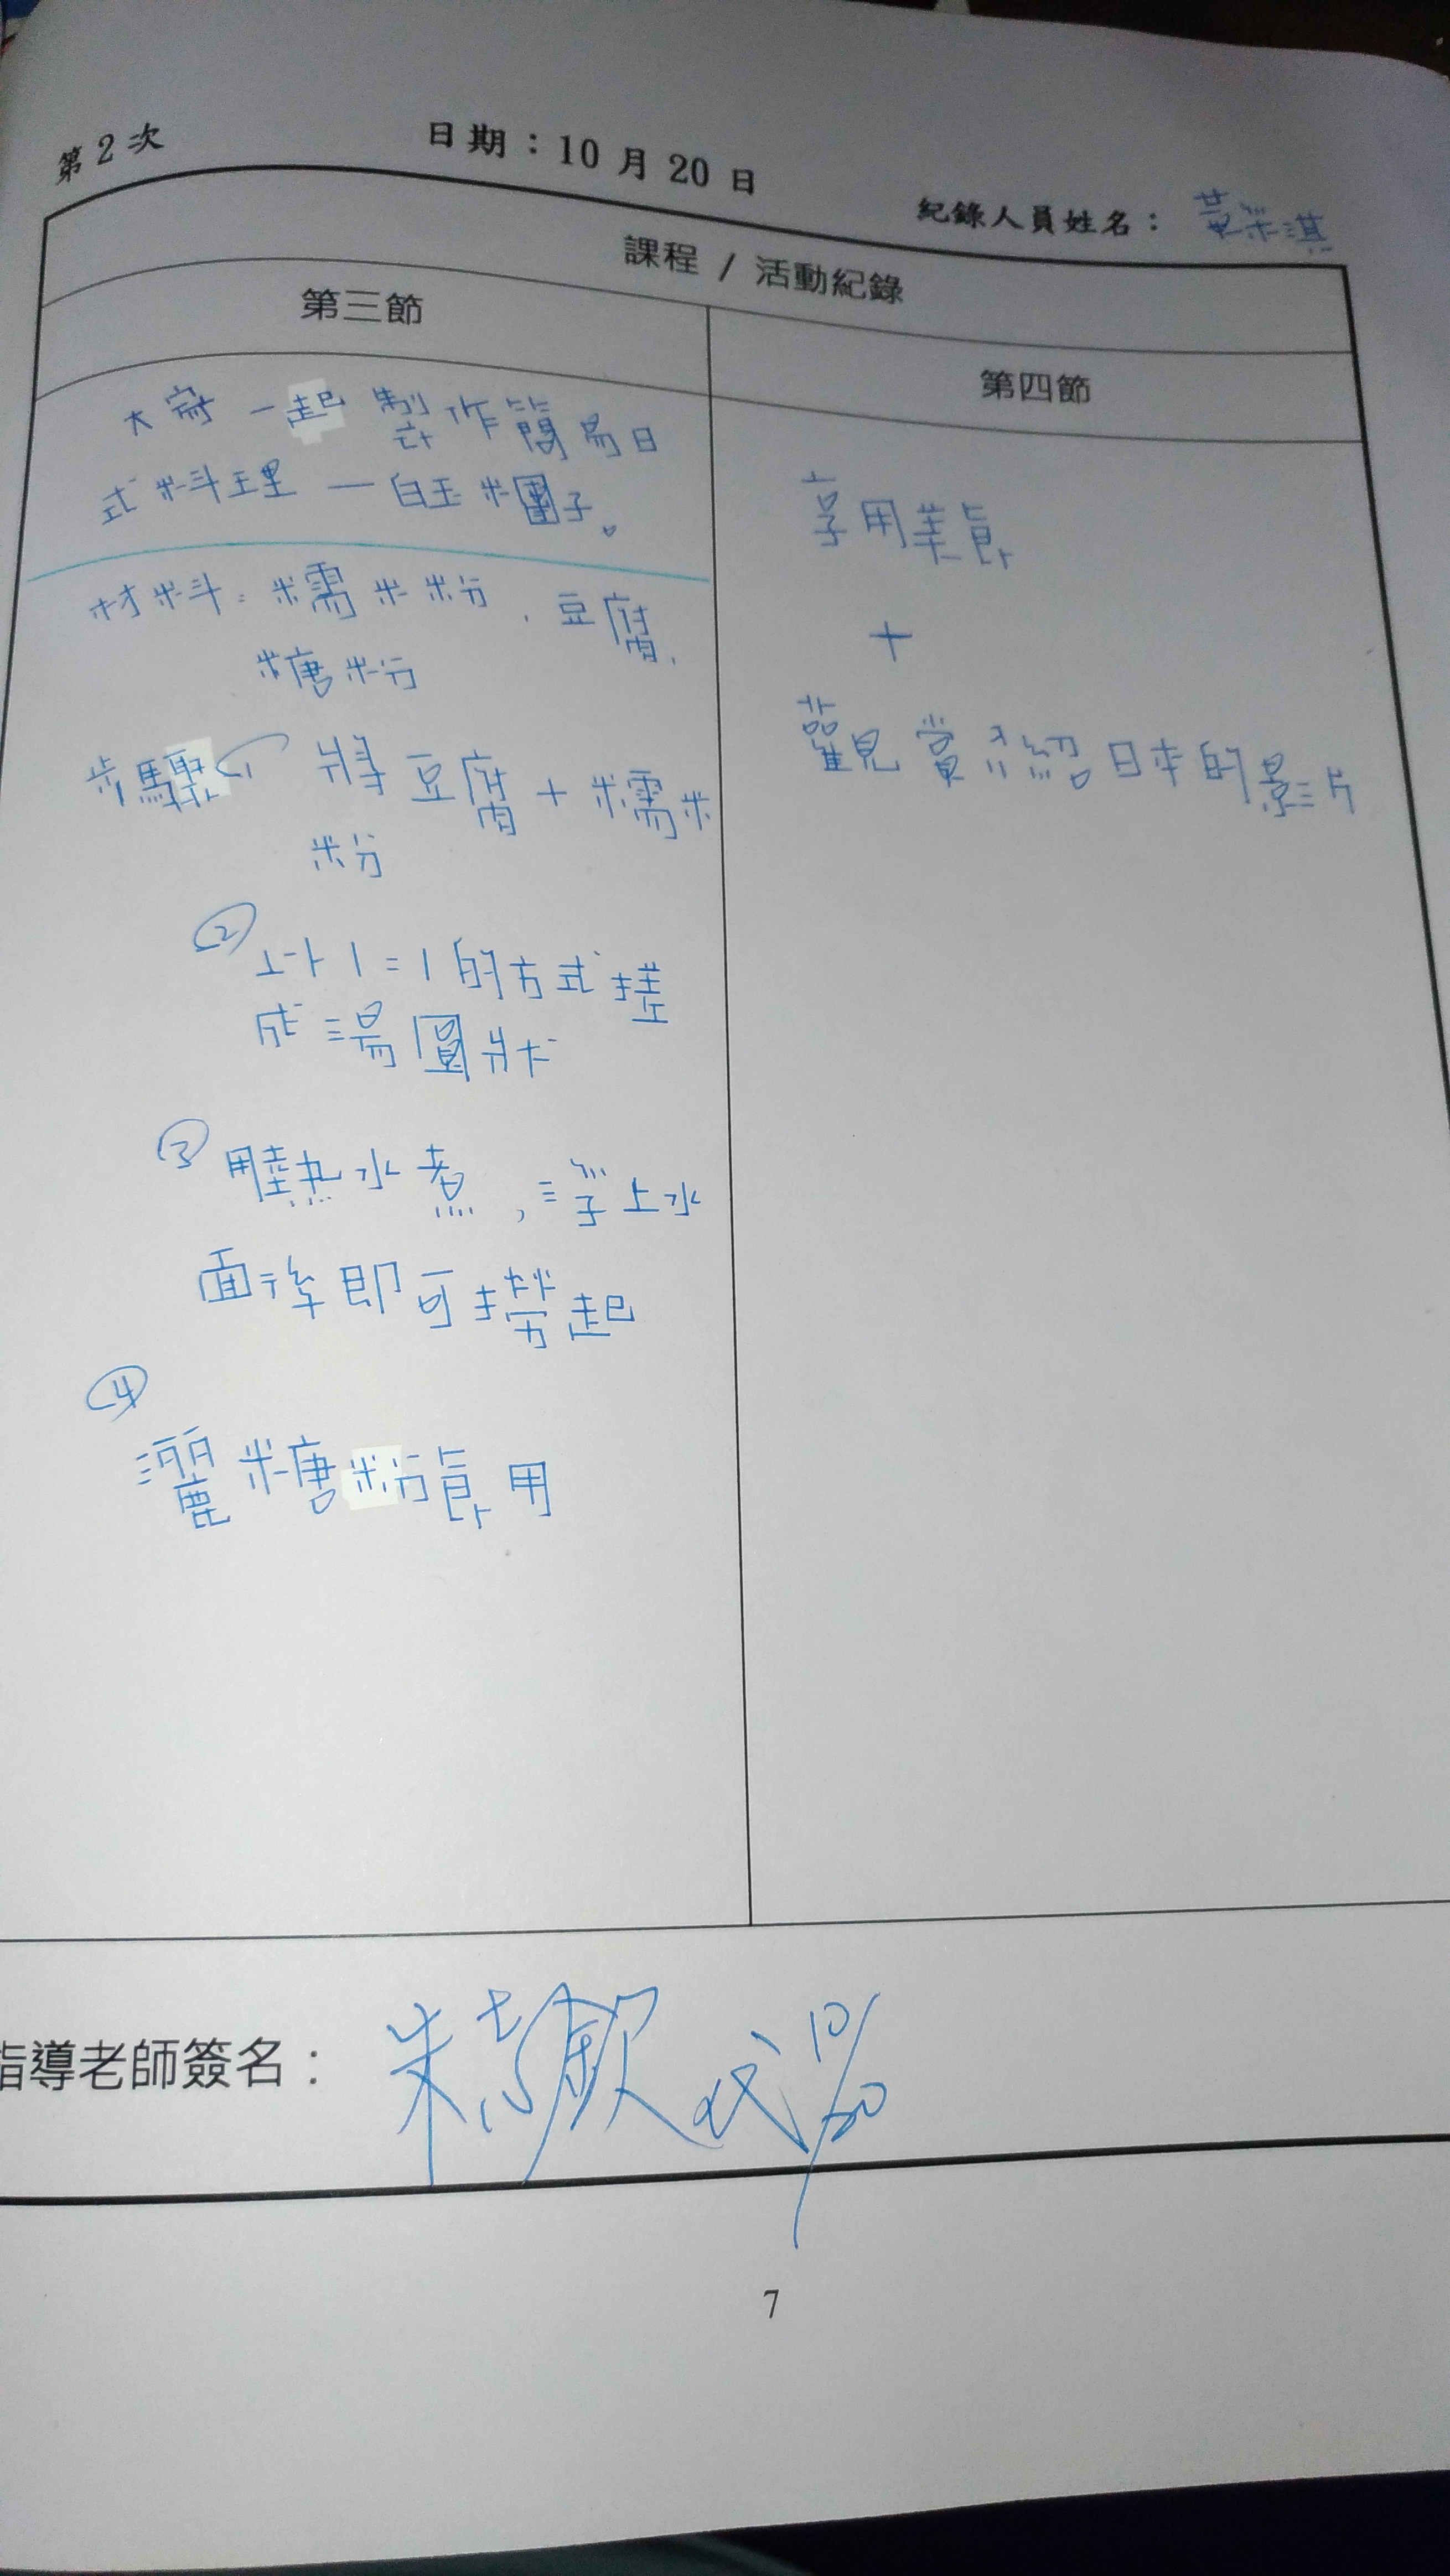 第2次
日期：10月20日
紀錄人員姓名：黃淇
課程 / 活動紀錄
第三節
大家一起製作簡易日
式料理一白玉糰子。
材料：糯米粉、豆腐、
糖粉
步驟① 將豆腐+糯米
粉
② 以1=1的方式搓
成湯圓狀
③ 用熱水煮，浮上水
面後即可撈起
④
灑糖粉食用
第四節
享用美食
+
觀賞介紹日本的影片
指導老師簽名：
朱 欽代 10/20
7